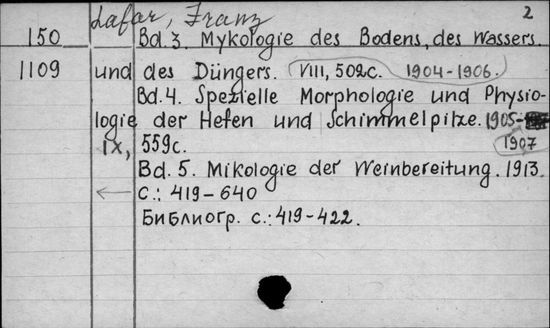 Lafar, Franz 2
150 Bd. 3. Mykologie des Bodens, des Wassers.
1109 und des Düngers. VIII, 502 с. 1904-1906.
Bd. 4. Spezielle Morphologie und Physio-
logie der Hefen und Schimmelpilze. 1905-
IX, 559 с. 1907
Bd. 5. Mikologie der Weinbereitung. 1913.
← с.: 419-640
Библиогр. с.: 419-422.